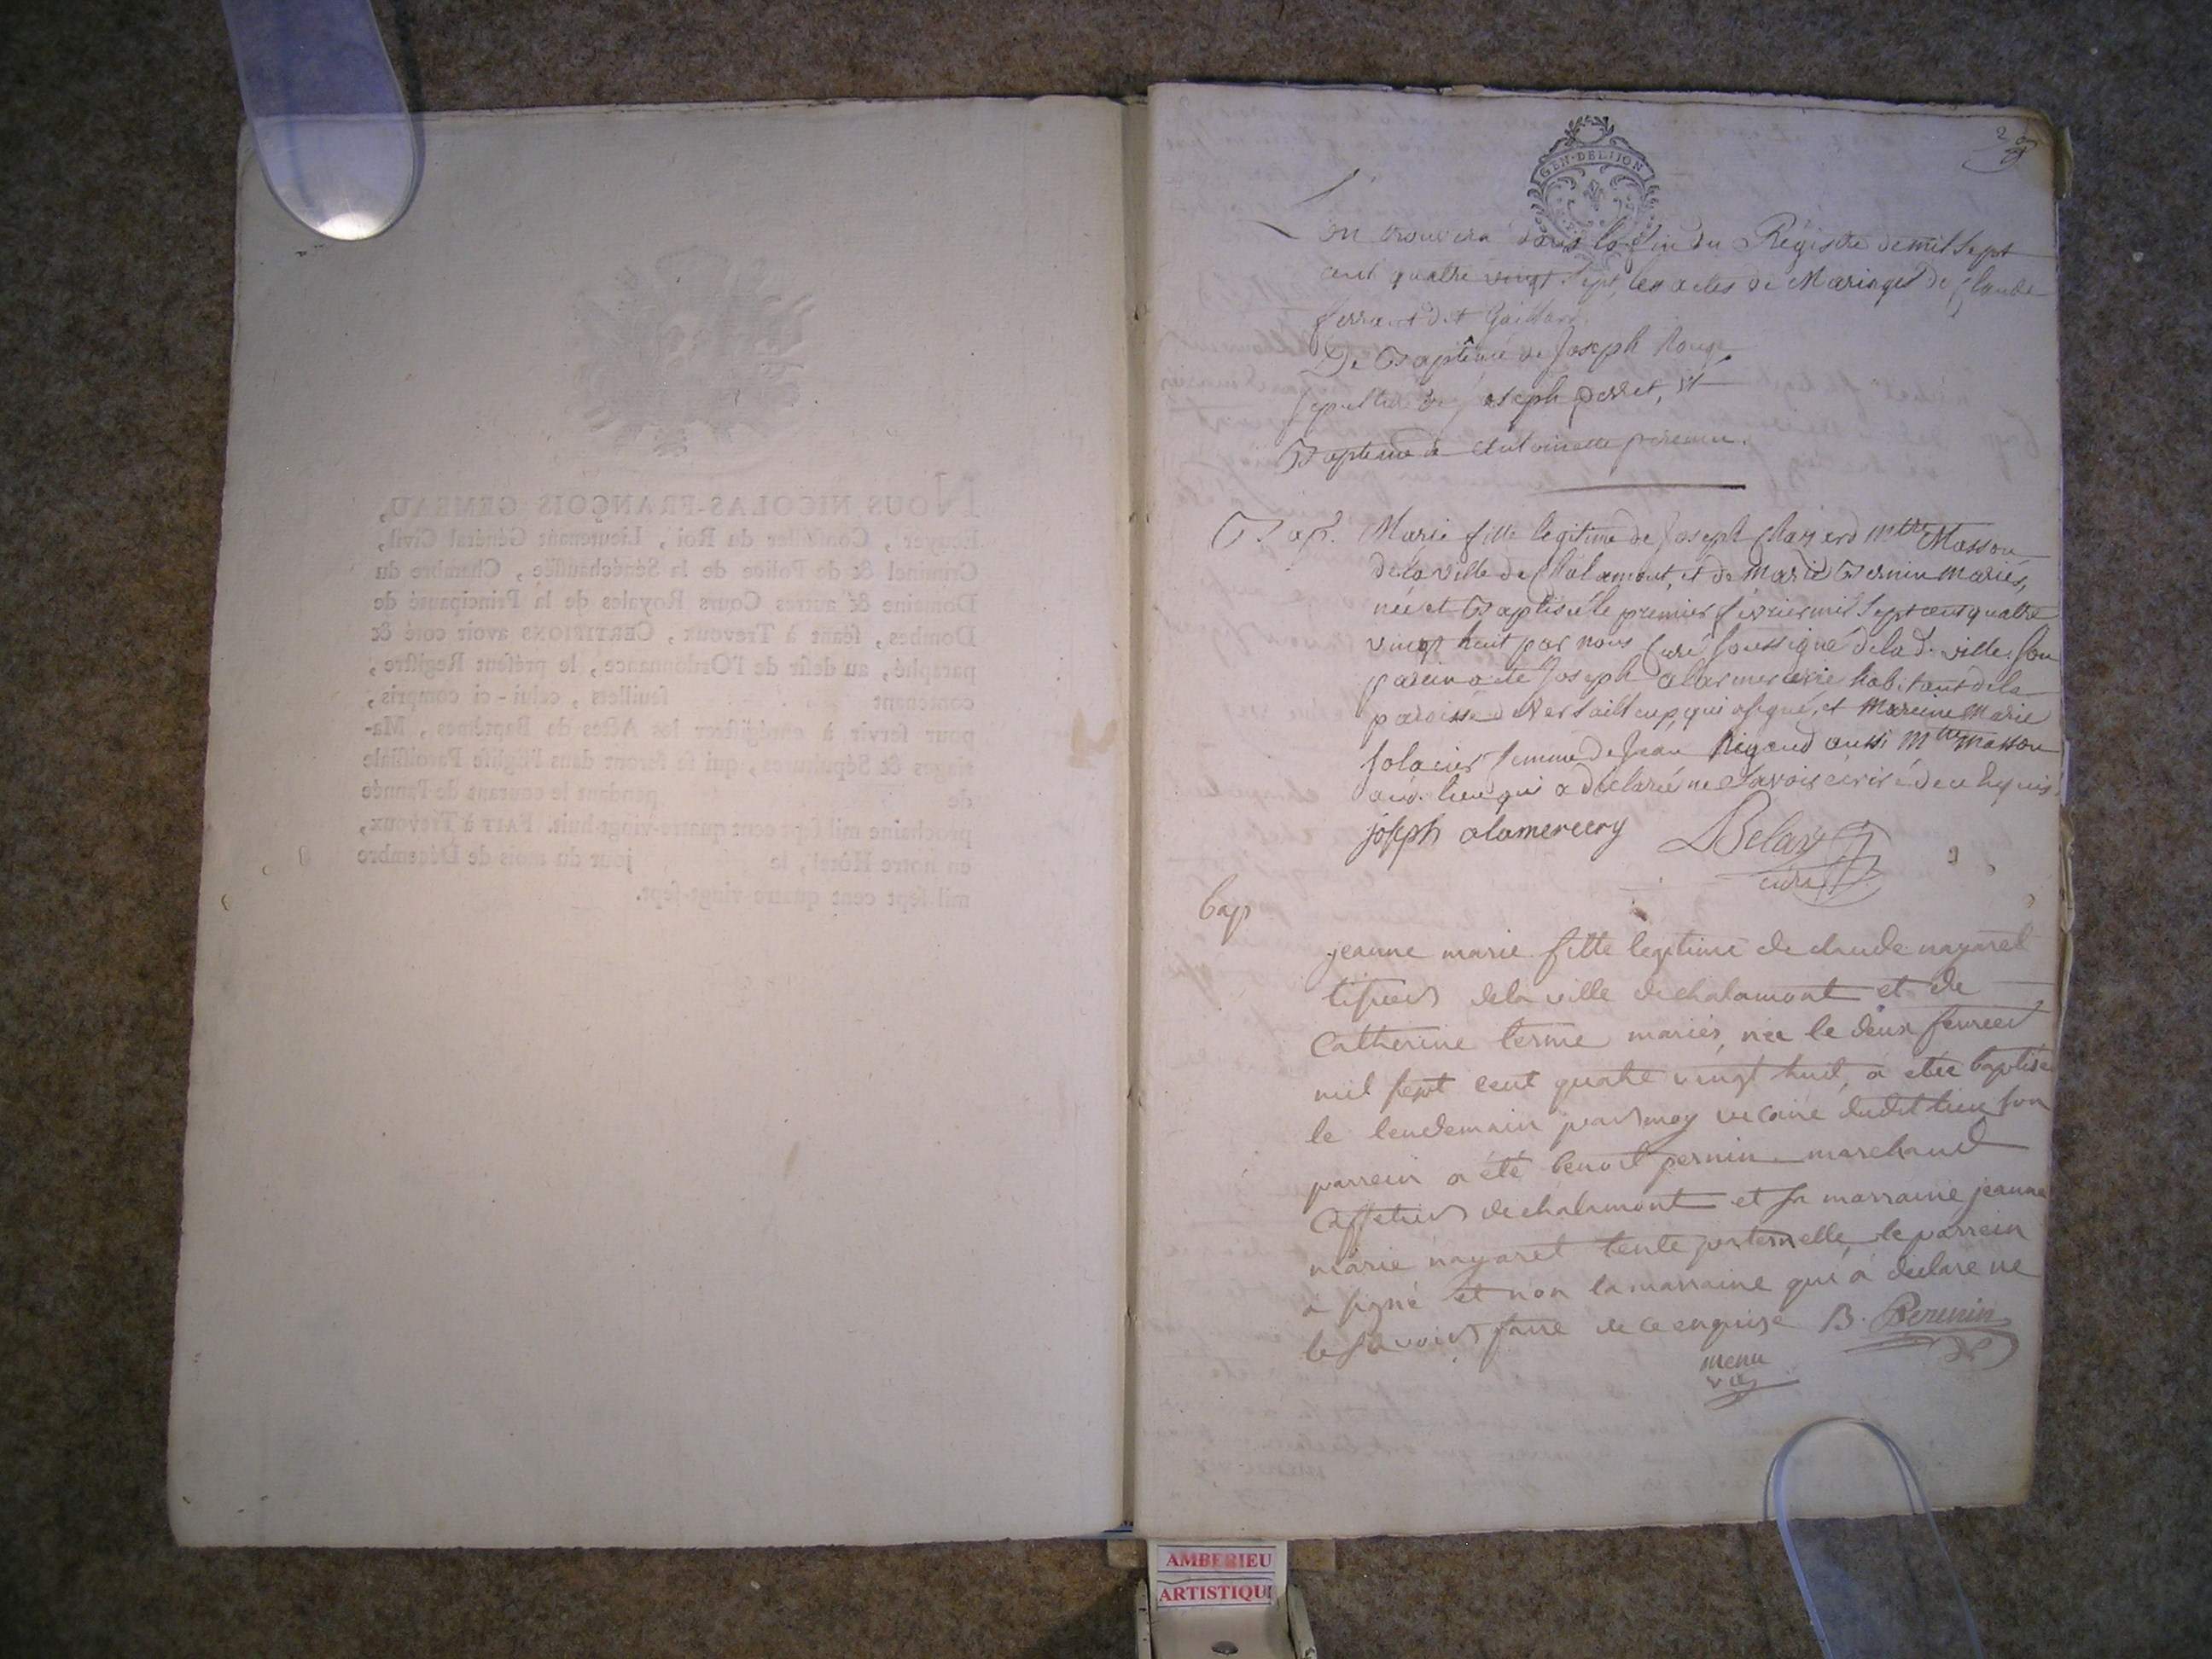 NOUS NICOLAS-FRANÇOIS GEMEAU,
Ecuyer, Conseiller du Roi, Lieutenant Général Civil,
Criminel & de Police de la Sénéchaussée, Chambre du
Domaine & autres Cours Royales de la Principauté de
Dombes, séant à Trevoux, CERTIFIONS avoir coté &
paraphé, au desir de l'Ordonnance, le présent Registre,
contenant feuillets, celui-ci compris,
pour servir à enrégistrer les Actes de Baptêmes, Ma-
riages & Sépultures, qui se feront dans l'Eglise Paroissiale
de pendant le courant de l'année
prochaine mil sept cent quatre-vingt-huit. FAIT à Trevoux,
en notre Hôtel, le jour du mois de Décembre
mil sept cent quatre-vingt-sept.
GEN·DE DIJON
L'on trouvera dans la fin du Registre de mil sept
cent quatre vingt sept, les actes de Mariages de Claude
ferrant dit Gaillard
De Baptême de Joseph Rouge
sepulture de Joseph perret, et
Bapteme de Antoinette
Bap. Marie fille legitime de Joseph Chayard mtre Masson
de la ville de Chalamont, et de Marie Bernin mariés,
née et Baptisée le premier février mil sept cent quatre
vingt huit par nous Curé soussigné de la d. ville. son
parein a été Joseph alarmercerie habitant de la
paroisse de Versailleup, qui a signé, et mareine Marie
Solacier femme de Jean Rigaud aussi mtre masson
aud. lieu qui a declaré ne savoir écrire de ce requis
joseph alamercery Belay
curé
bap
jeanne marie fille legitime de claude nayaret
tisseur de la ville de chalamont et de
Catherine terme mariés, née le deux fevrier
mil sept cent quatre vingt huit, a etée baptisée
le lendemain par moy vicaire dudit lieu son
parrein a été benoit pernin marchand
Caffetier de chalamont et sa marraine jeanne
marie nayaret tente paternelle, le parrein
a signé et non la marraine qui a declare ne
le savoir faire de ce enquise B. Perenin
menu
vic
AMBERIEU
ARTISTIQU